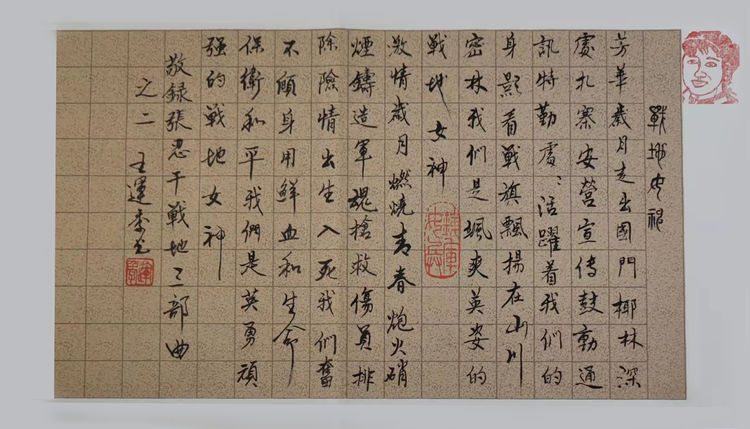 戰地女神
芳華歲月走出國門椰林深
處扎寨安營宣傳鼓動通
訊特勤處處活躍着我们的
身影看戰旗飄揚在山川
密林我们是颯爽英姿的
戰地女神
激情歲月燃燒青春炮火硝
煙鑄造軍魂搶救傷員排
除險情出生入死我们奮
不顧身用鮮血和生命
保衛和平我們是英勇頑
强的戰地女神
敬錄張忍干戰地三部曲
之二 王運